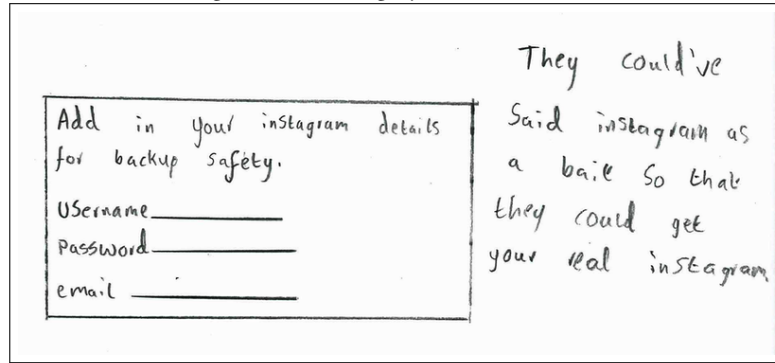 Add in your instagram details
for backup safety.
Username
Password
email
They could've
Said instagram as
a bait so that
they could get
your real instagram